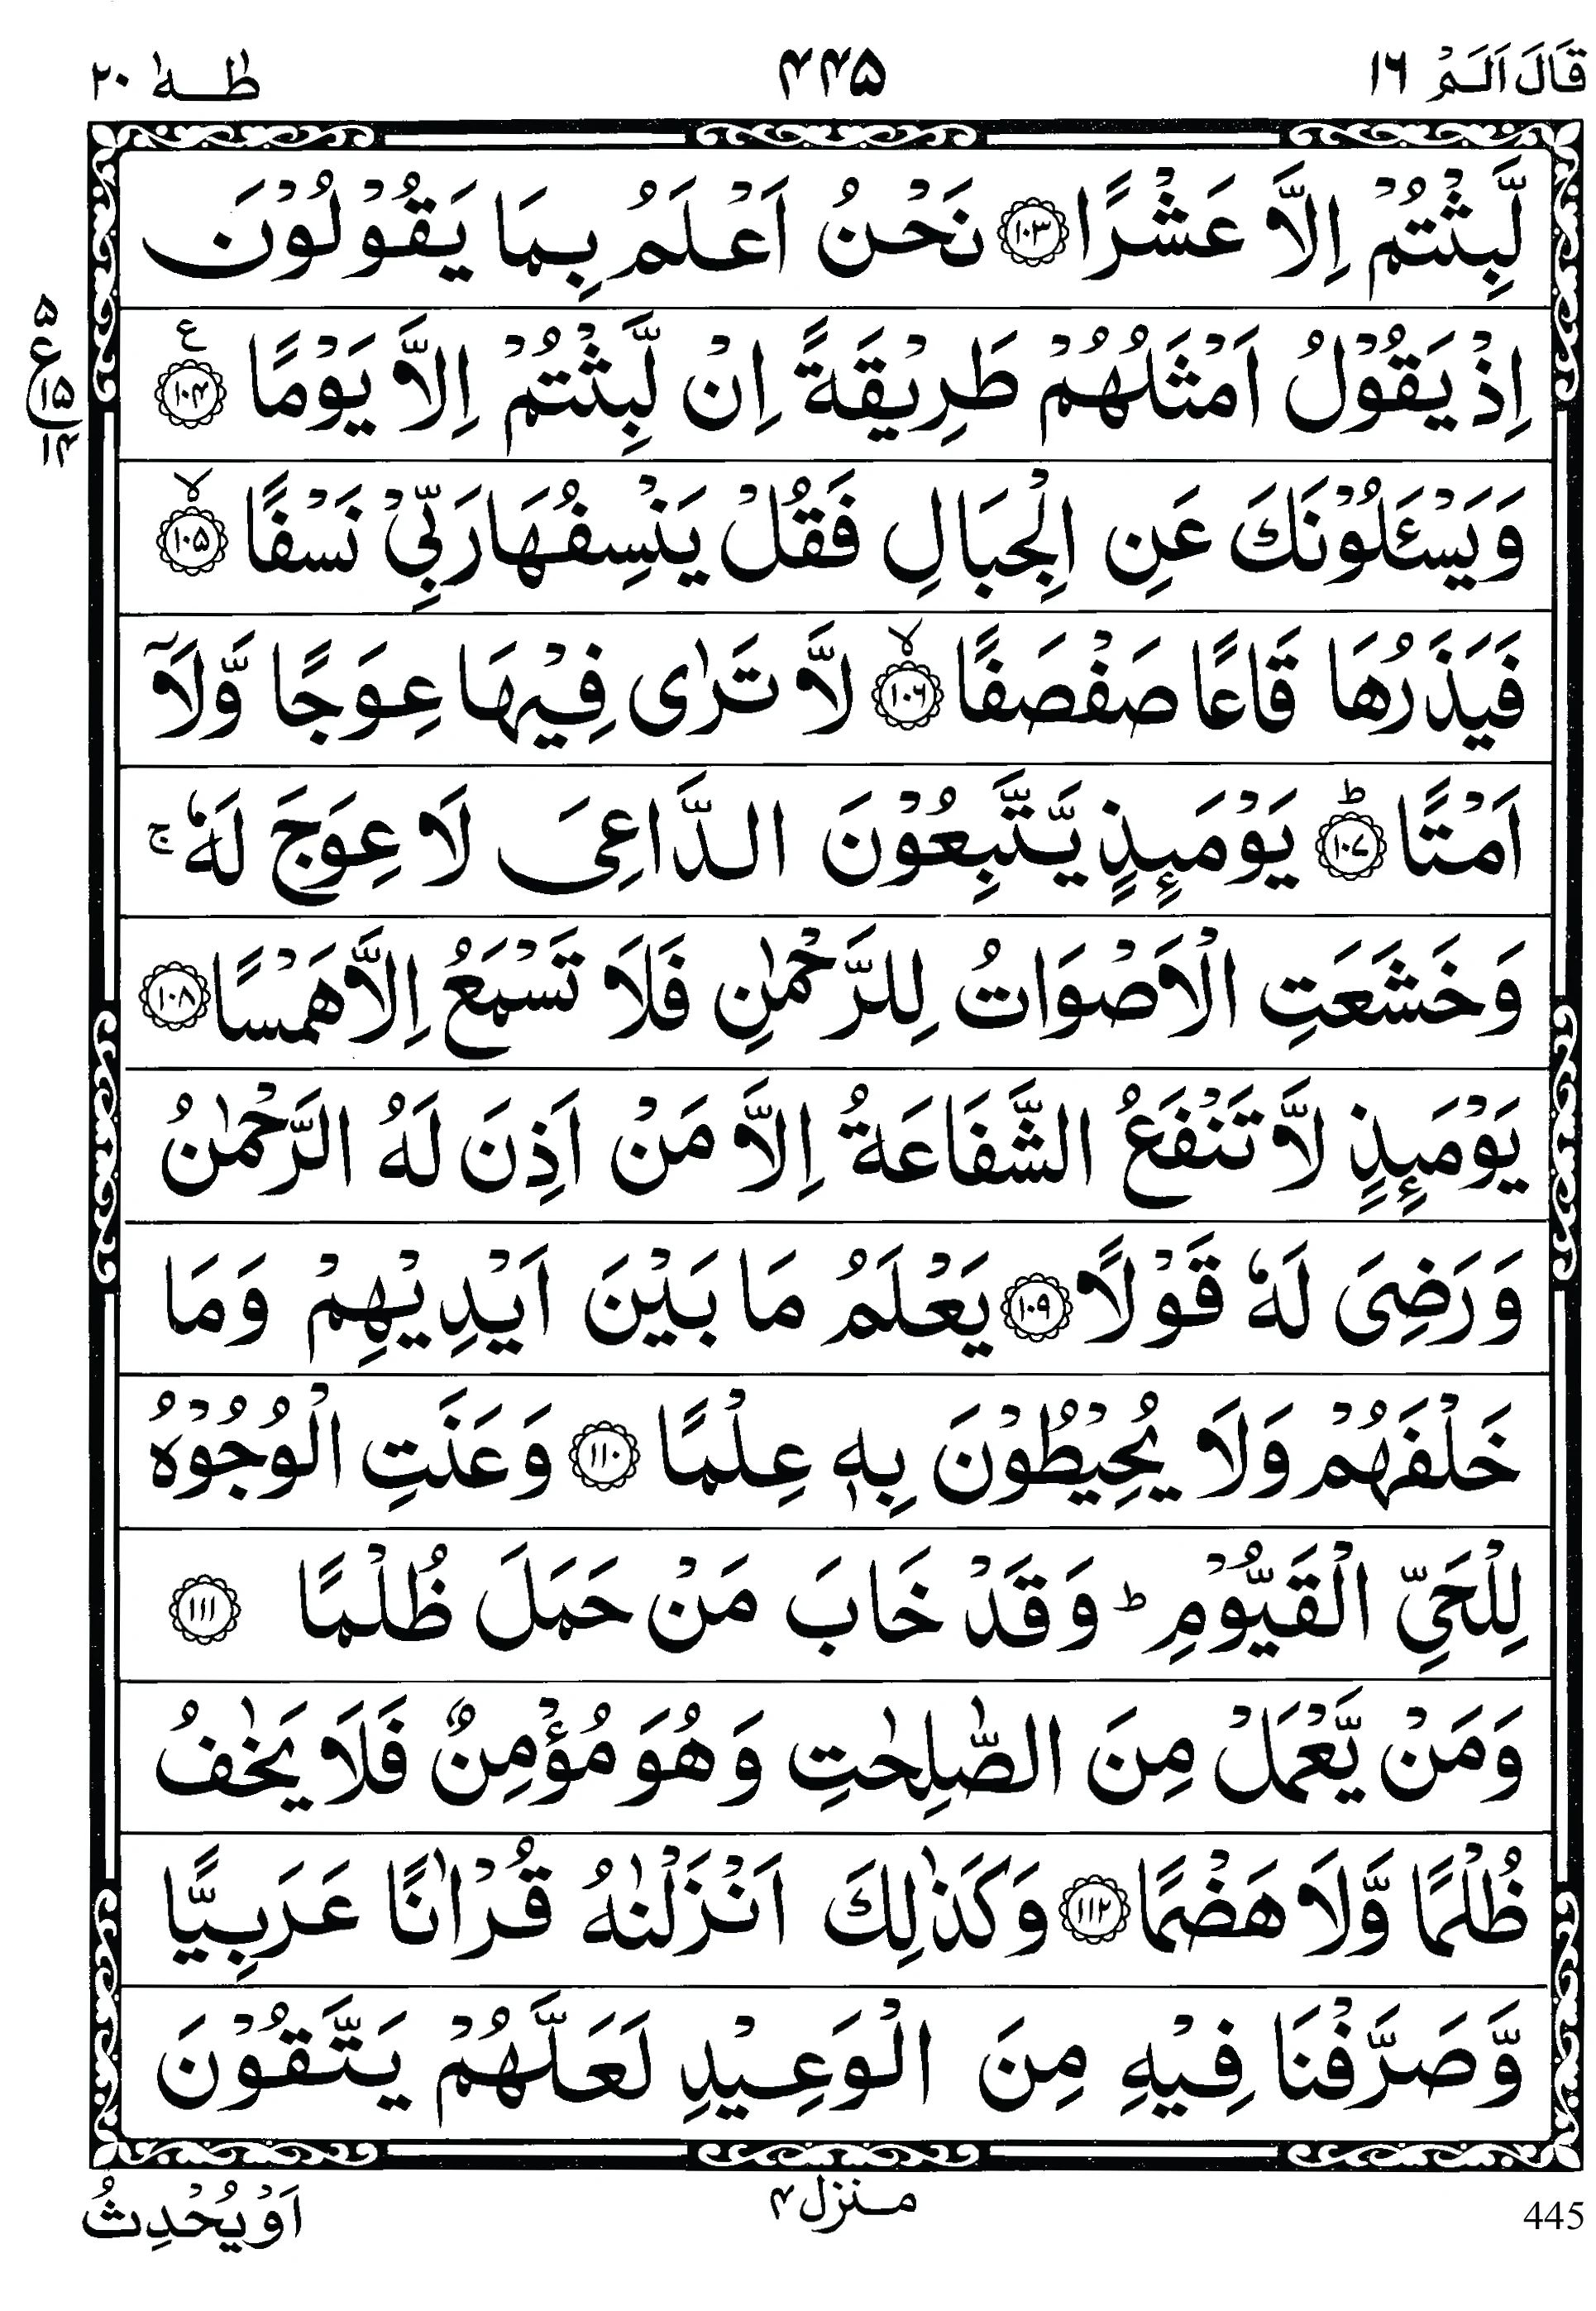 قَالَ اَلَمْ ١٦ ۴۴۵ طٰهٰ ٢٠
لَّبِثْتُمْ اِلَّا عَشْرًا ﴿١٠٣﴾ نَحْنُ اَعْلَمُ بِمَا يَقُوْلُوْنَ
اِذْ يَقُوْلُ اَمْثَلُهُمْ طَرِيْقَةً اِنْ لَّبِثْتُمْ اِلَّا يَوْمًا ﴿١٠۴﴾ ع
۵
ع ١۵
١۴
وَيَسْـَٔلُوْنَكَ عَنِ الْجِبَالِ فَقُلْ يَنْسِفُهَا رَبِّيْ نَسْفًا ﴿١٠۵﴾ ۙ
فَيَذَرُهَا قَاعًا صَفْصَفًا ﴿١٠٦﴾ ۙ لَّا تَرٰى فِيْهَا عِوَجًا وَّلَاۤ
اَمْتًا ﴿١٠٧﴾ ؕ يَوْمَىِٕذٍ يَّتَّبِعُوْنَ الدَّاعِىَ لَا عِوَجَ لَهٗ ۚ
وَخَشَعَتِ الْاَصْوَاتُ لِلرَّحْمٰنِ فَلَا تَسْمَعُ اِلَّا هَمْسًا ﴿١٠٨﴾
يَوْمَىِٕذٍ لَّا تَنْفَعُ الشَّفَاعَةُ اِلَّا مَنْ اَذِنَ لَهُ الرَّحْمٰنُ
وَرَضِىَ لَهٗ قَوْلًا ﴿١٠٩﴾ يَعْلَمُ مَا بَيْنَ اَيْدِيْهِمْ وَمَا
خَلْفَهُمْ وَلَا يُحِيْطُوْنَ بِهٖ عِلْمًا ﴿١١٠﴾ وَعَنَتِ الْوُجُوْهُ
لِلْحَيِّ الْقَيُّوْمِ ؕ وَقَدْ خَابَ مَنْ حَمَلَ ظُلْمًا ﴿١١١﴾
وَمَنْ يَّعْمَلْ مِنَ الصّٰلِحٰتِ وَهُوَ مُؤْمِنٌ فَلَا يَخٰفُ
ظُلْمًا وَّلَا هَضْمًا ﴿١١٢﴾ وَكَذٰلِكَ اَنْزَلْنٰهُ قُرْاٰنًا عَرَبِيًّا
وَّصَرَّفْنَا فِيْهِ مِنَ الْوَعِيْدِ لَعَلَّهُمْ يَتَّقُوْنَ
445 منزل ۴ اَوْ يُحْدِثُ